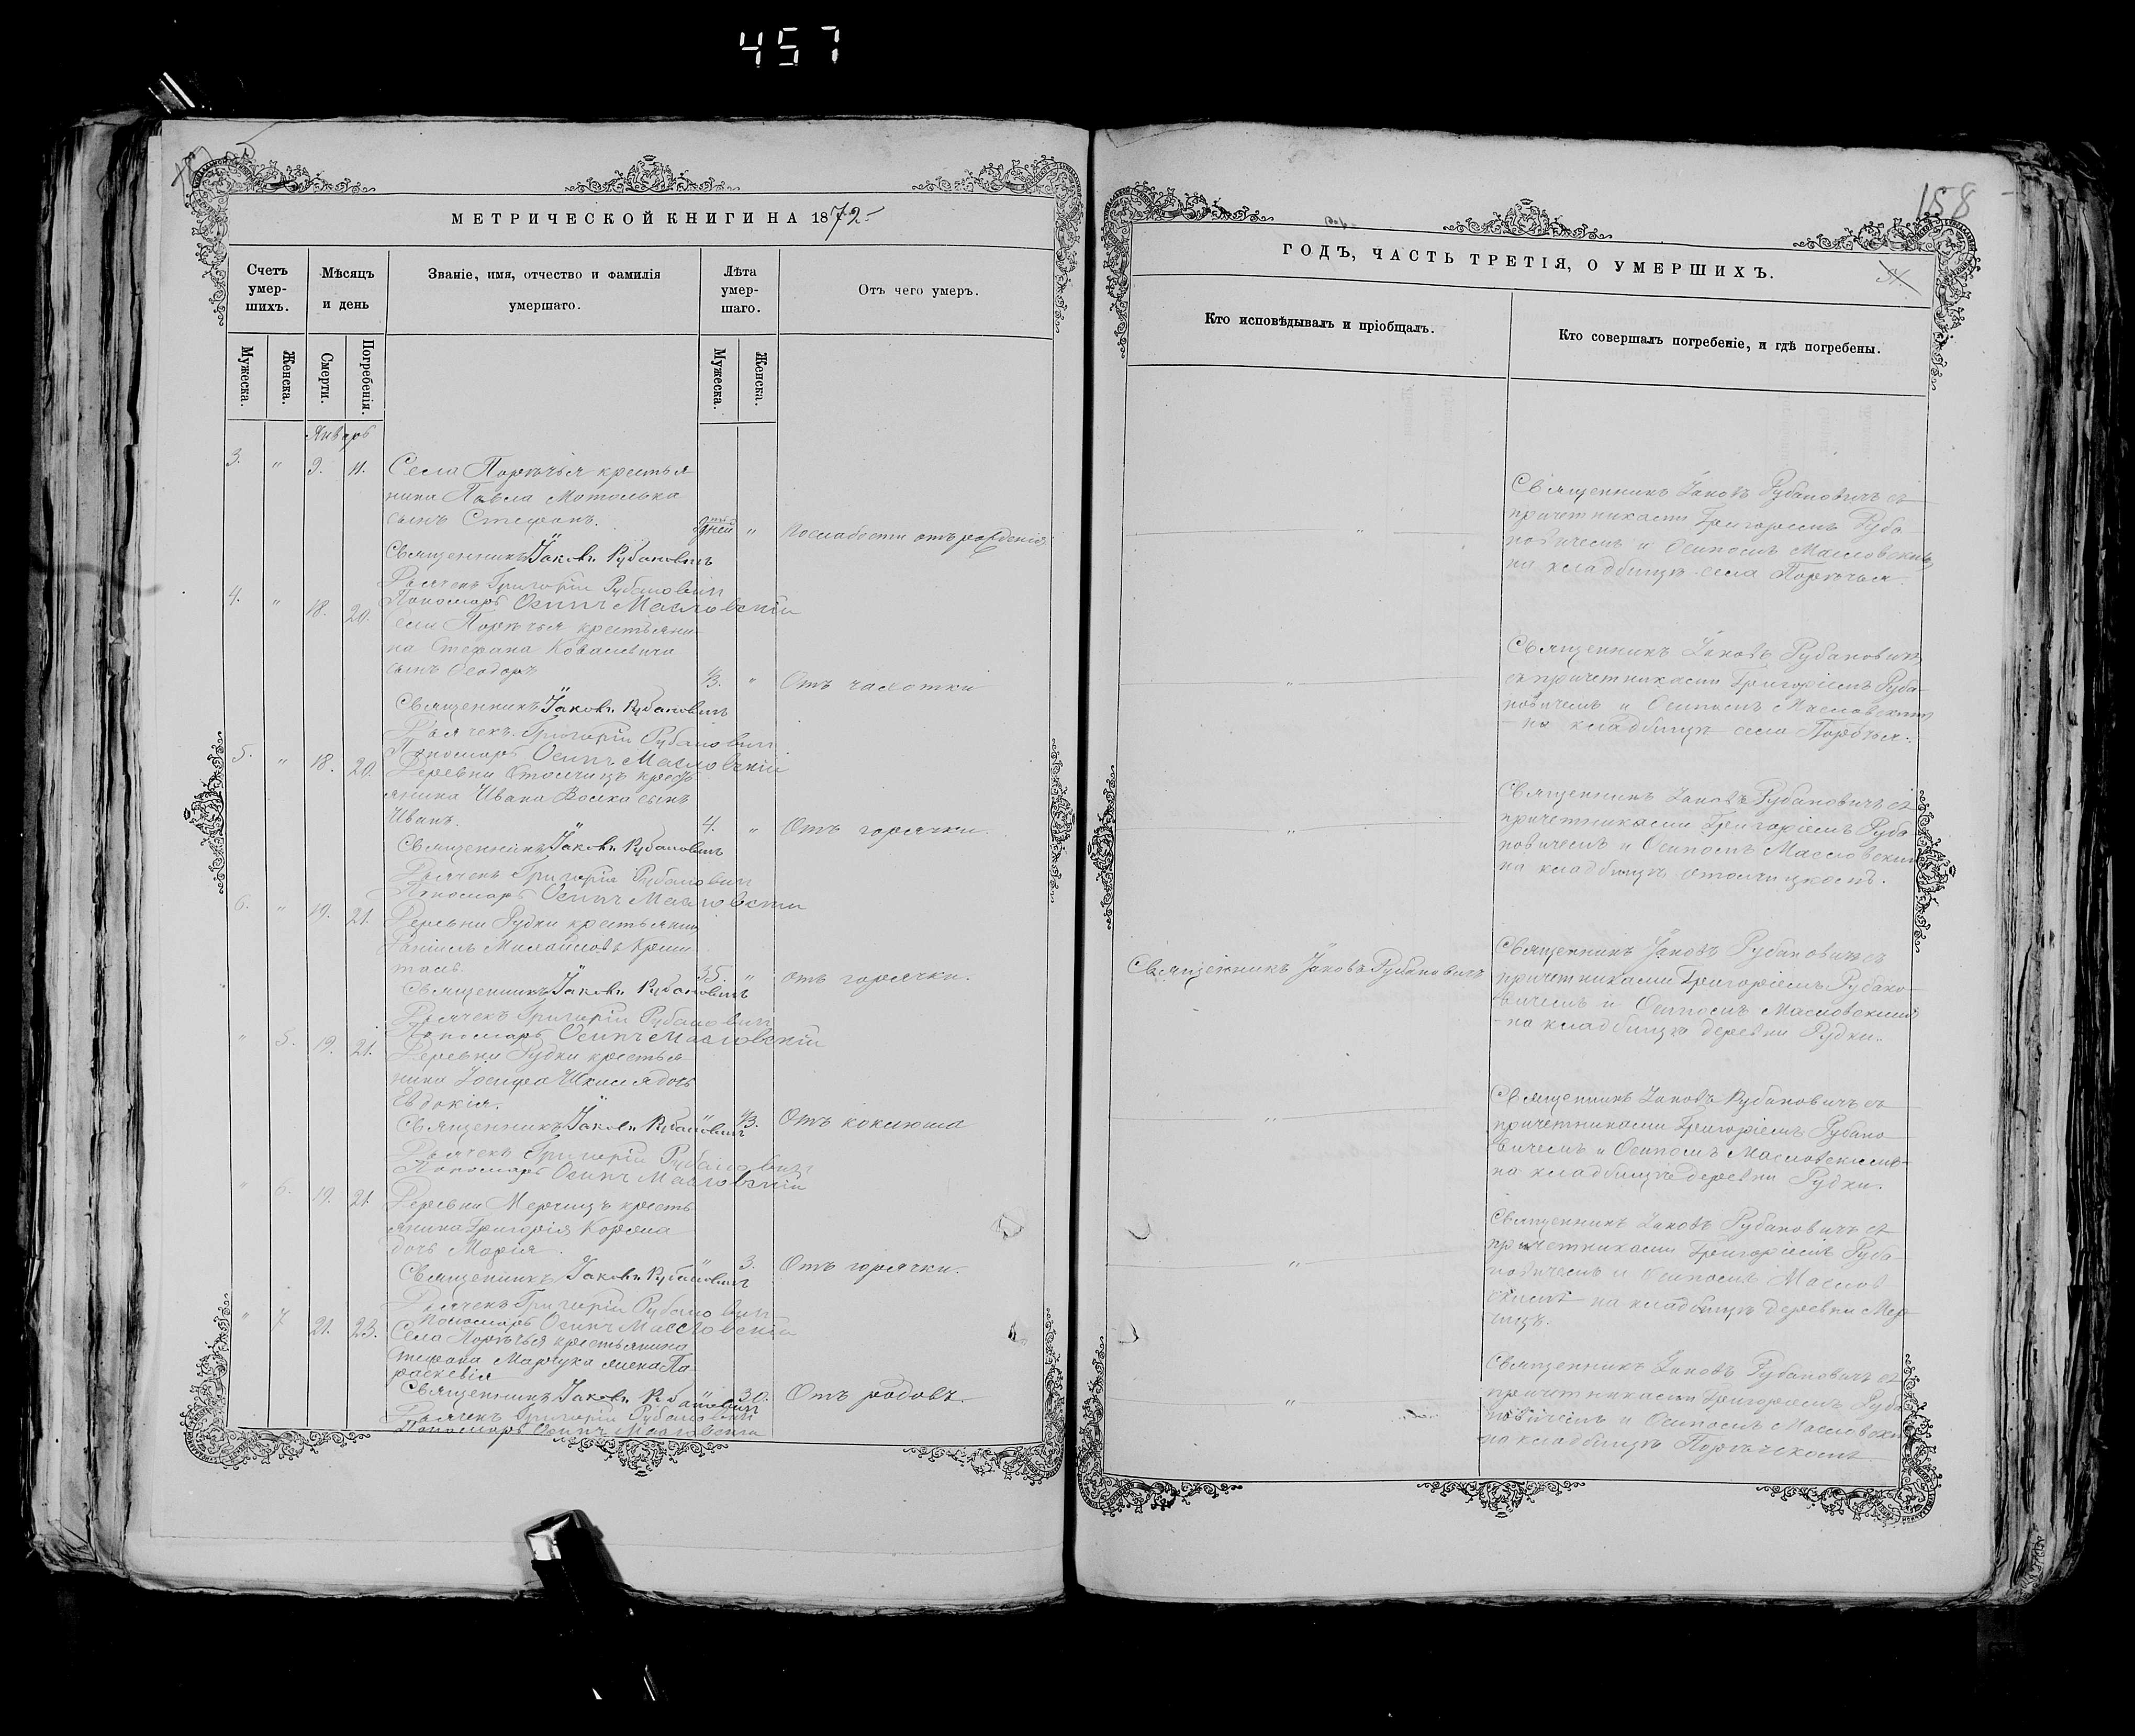 457
МЕТРИЧЕСКОЙ КНИГИ НА 1872
Счетъ умер-шихъ.
Мѣсяцъ и день
Званіе, имя, отчество и фамилія умершаго.
Лѣта умер-шаго.
Отъ чего умеръ.
Мужеска.
Женска.
Смерти.
Погребенія.
Мужеска.
Женска.
Январь
3. " 9. 11. Села Порѣчья крестья
нина Павла Мотолька
сынъ Стефанъ. дней " По слабости отъ рожденія
Священникъ Іаковъ Рубановичъ
Дьячекъ Григорій Рубановичъ
Пономарь Осипъ Масловскій
4. " 18. 20. Села Порѣчья крестьяни
на Стефана Ковалевича
сынъ Ѳеодоръ 1/3. " Отъ чахотки
Священникъ Іаковъ Рубановичъ
Дьячекъ Григорій Рубановичъ
Пономарь Осипъ Масловскій
5. " 18. 20. Деревни Отолчицъ крест
янина Ивана сынъ
Иванъ. 4. " Отъ горячки.
Священникъ Іаковъ Рубановичъ
Дьячекъ Григорій Рубановичъ
Пономарь Осипъ Масловскій
6. " 19. 21. Деревни Рудки крестьянин
Даніилъ Михайловъ
35. " отъ горячки.
Священникъ Іаковъ Рубановичъ
Дьячекъ Григорій Рубановичъ
Пономарь Осипъ Масловскій
" 5. 19. 21. Деревни Рудки крестья
нина Іосифа дочь
Евдокія. " 1/3. Отъ коклюша
Священникъ Іаковъ Рубановичъ
Дьячекъ Григорій Рубановичъ
Пономарь Осипъ Масловскій
" 6. 19. 21. Деревни Мерчицъ кресть
янина Григорія
дочь Марія. " 3. Отъ горячки.
Священникъ Іаковъ Рубановичъ
Дьячекъ Григорій Рубановичъ
Пономарь Осипъ Масловскій
" 7 21. 23. Села Порѣчья крестьянина
Стефана Марчука жена Па
раскевія " 30. Отъ родовъ.
Священникъ Іаковъ Рубановичъ
Дьячекъ Григорій Рубановичъ
Пономарь Осипъ Масловскій
158
ГОДЪ, ЧАСТЬ ТРЕТІЯ, О УМЕРШИХЪ.
Кто исповѣдывалъ и пріобщалъ.
Кто совершалъ погребеніе, и гдѣ погребены.
Священникъ Іаковъ Рубановичъ съ
причетниками Григоріемъ Руба
новичемъ и Осипомъ Масловскимъ
на кладбищѣ села Порѣчья.
Священникъ Іаковъ Рубановичъ
съ причетниками Григоріемъ Руба-
новичемъ и Осипомъ Масловскимъ
на кладбищѣ села Порѣчья.
Священникъ Іаковъ Рубановичъ съ
причетниками Григоріемъ Руба
новичемъ и Осипомъ Масловским
на кладбищѣ Отолчицкомъ.
Священникъ Іаковъ Рубановичъ
Священникъ Іаковъ Рубановичъ съ
причетниками Григоріемъ Рубано-
вичемъ и Осипомъ Масловскимъ
на кладбищѣ деревни Рудки.
Священникъ Іаковъ Рубановичъ съ
причетниками Григоріемъ Рубано
вичемъ и Осипомъ Масловскимъ
на кладбищѣ деревни Рудки.
Священникъ Іаковъ Рубановичъ съ
причетниками Григоріемъ Руба
новичемъ и Осипомъ Маслов
скимъ на кладбищѣ деревни Мер
чицъ.
Священникъ Іаковъ Рубановичъ съ
причетниками Григоріемъ Руба
новичемъ и Осипомъ Масловски
на кладбищѣ Порѣчскомъ